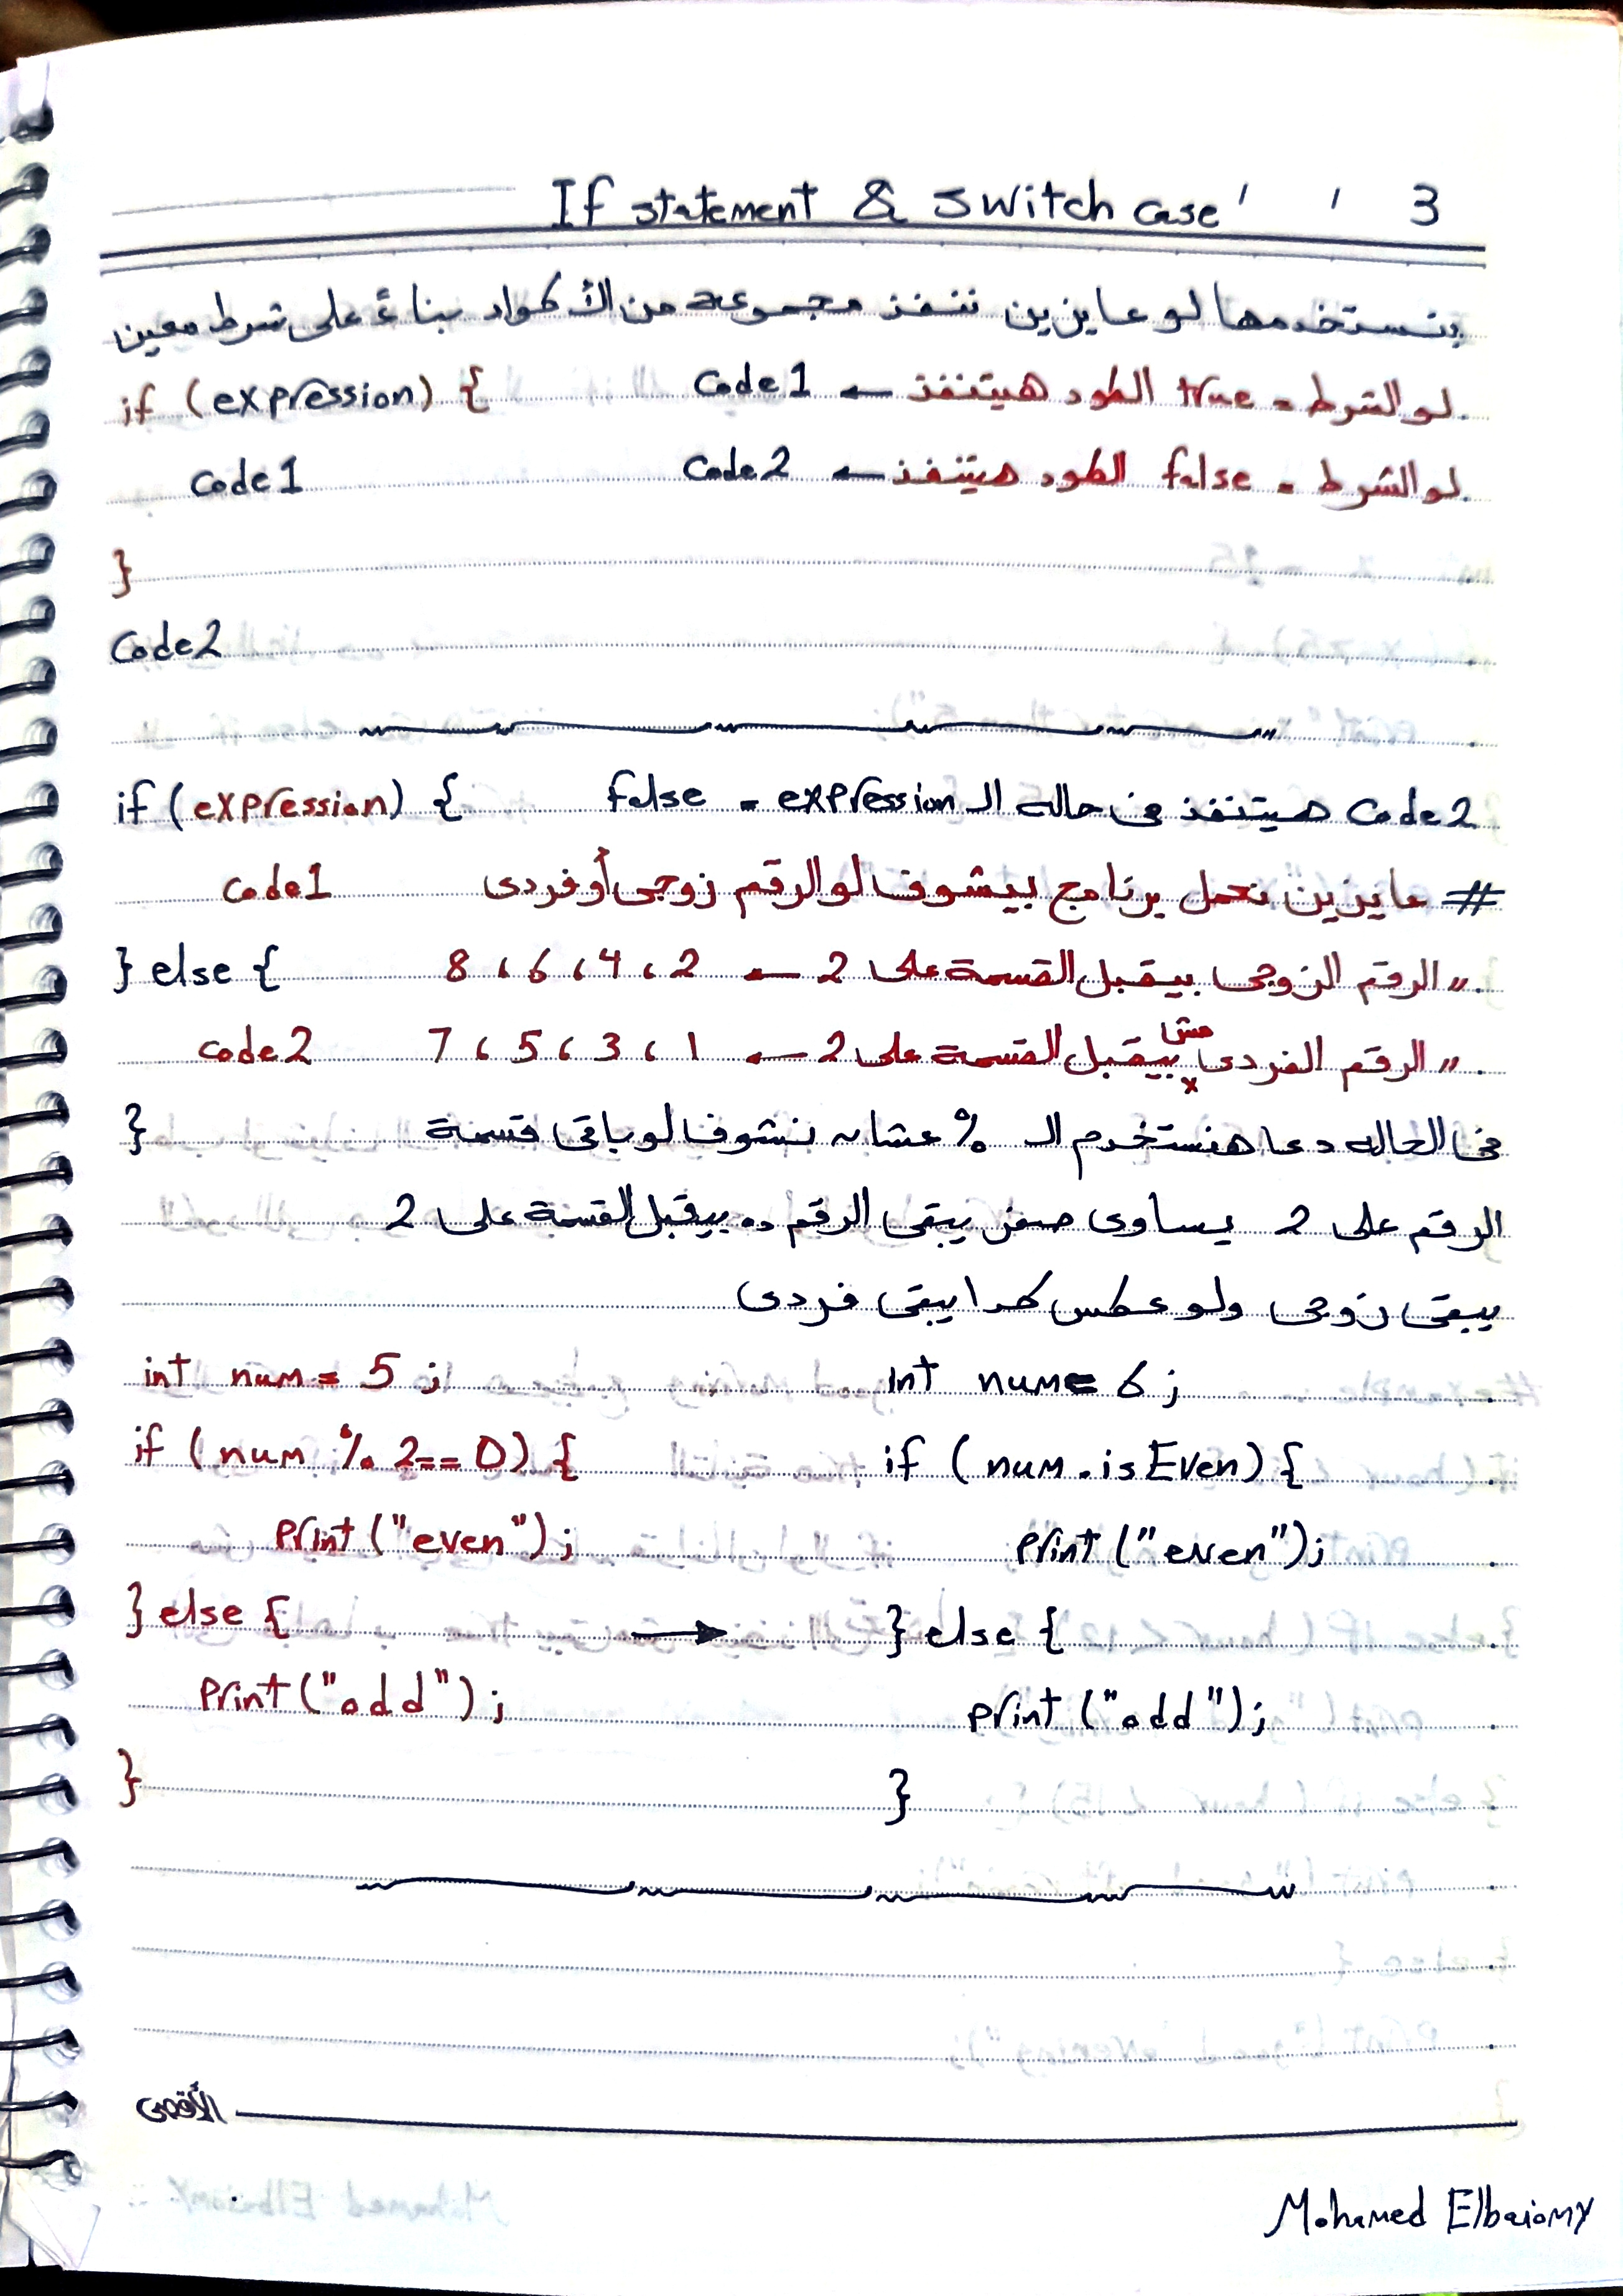 If statement & switch case ' ' 3
بنستخدمها لو عايزين ننفذ مجموعة من الأكواد بناءً على شرط معين
if (expression) { لو الشرط = true الكود هيتنفذ ← Code1
Code1 لو الشرط = false الكود هيتنفذ ← Code2
}
Code2
if (expression) { Code2 هيتنفذ فى حاله الـ expression = false
# عايزين نعمل برنامج بيشوف لو الرقم زوجى أو فردى
code1
} else { " الرقم الزوجى بيقبل القسمة على 2 ← 2 ، 4 ، 6 ، 8
code2 " الرقم الفردى مش بيقبل القسمة على 2 ← 1 ، 3 ، 5 ، 7
} فى الحاله دعا هنستخدم الـ % عشان نشوف لو باقى قسمة
الرقم على 2 يساوى صفر يبقى الرقم ده بيقبل القسمة على 2
يبقى زوجى ولو عكس كدا يبقى فردى
int num = 5 ;
if (num % 2 == 0) {
print ("even") ;
} else { →
print ("odd") ;
}
int num = 6 ;
if (num.isEven) {
print ("even");
} else {
print ("odd");
}
الأقصى
Mohamed Elbaiomy